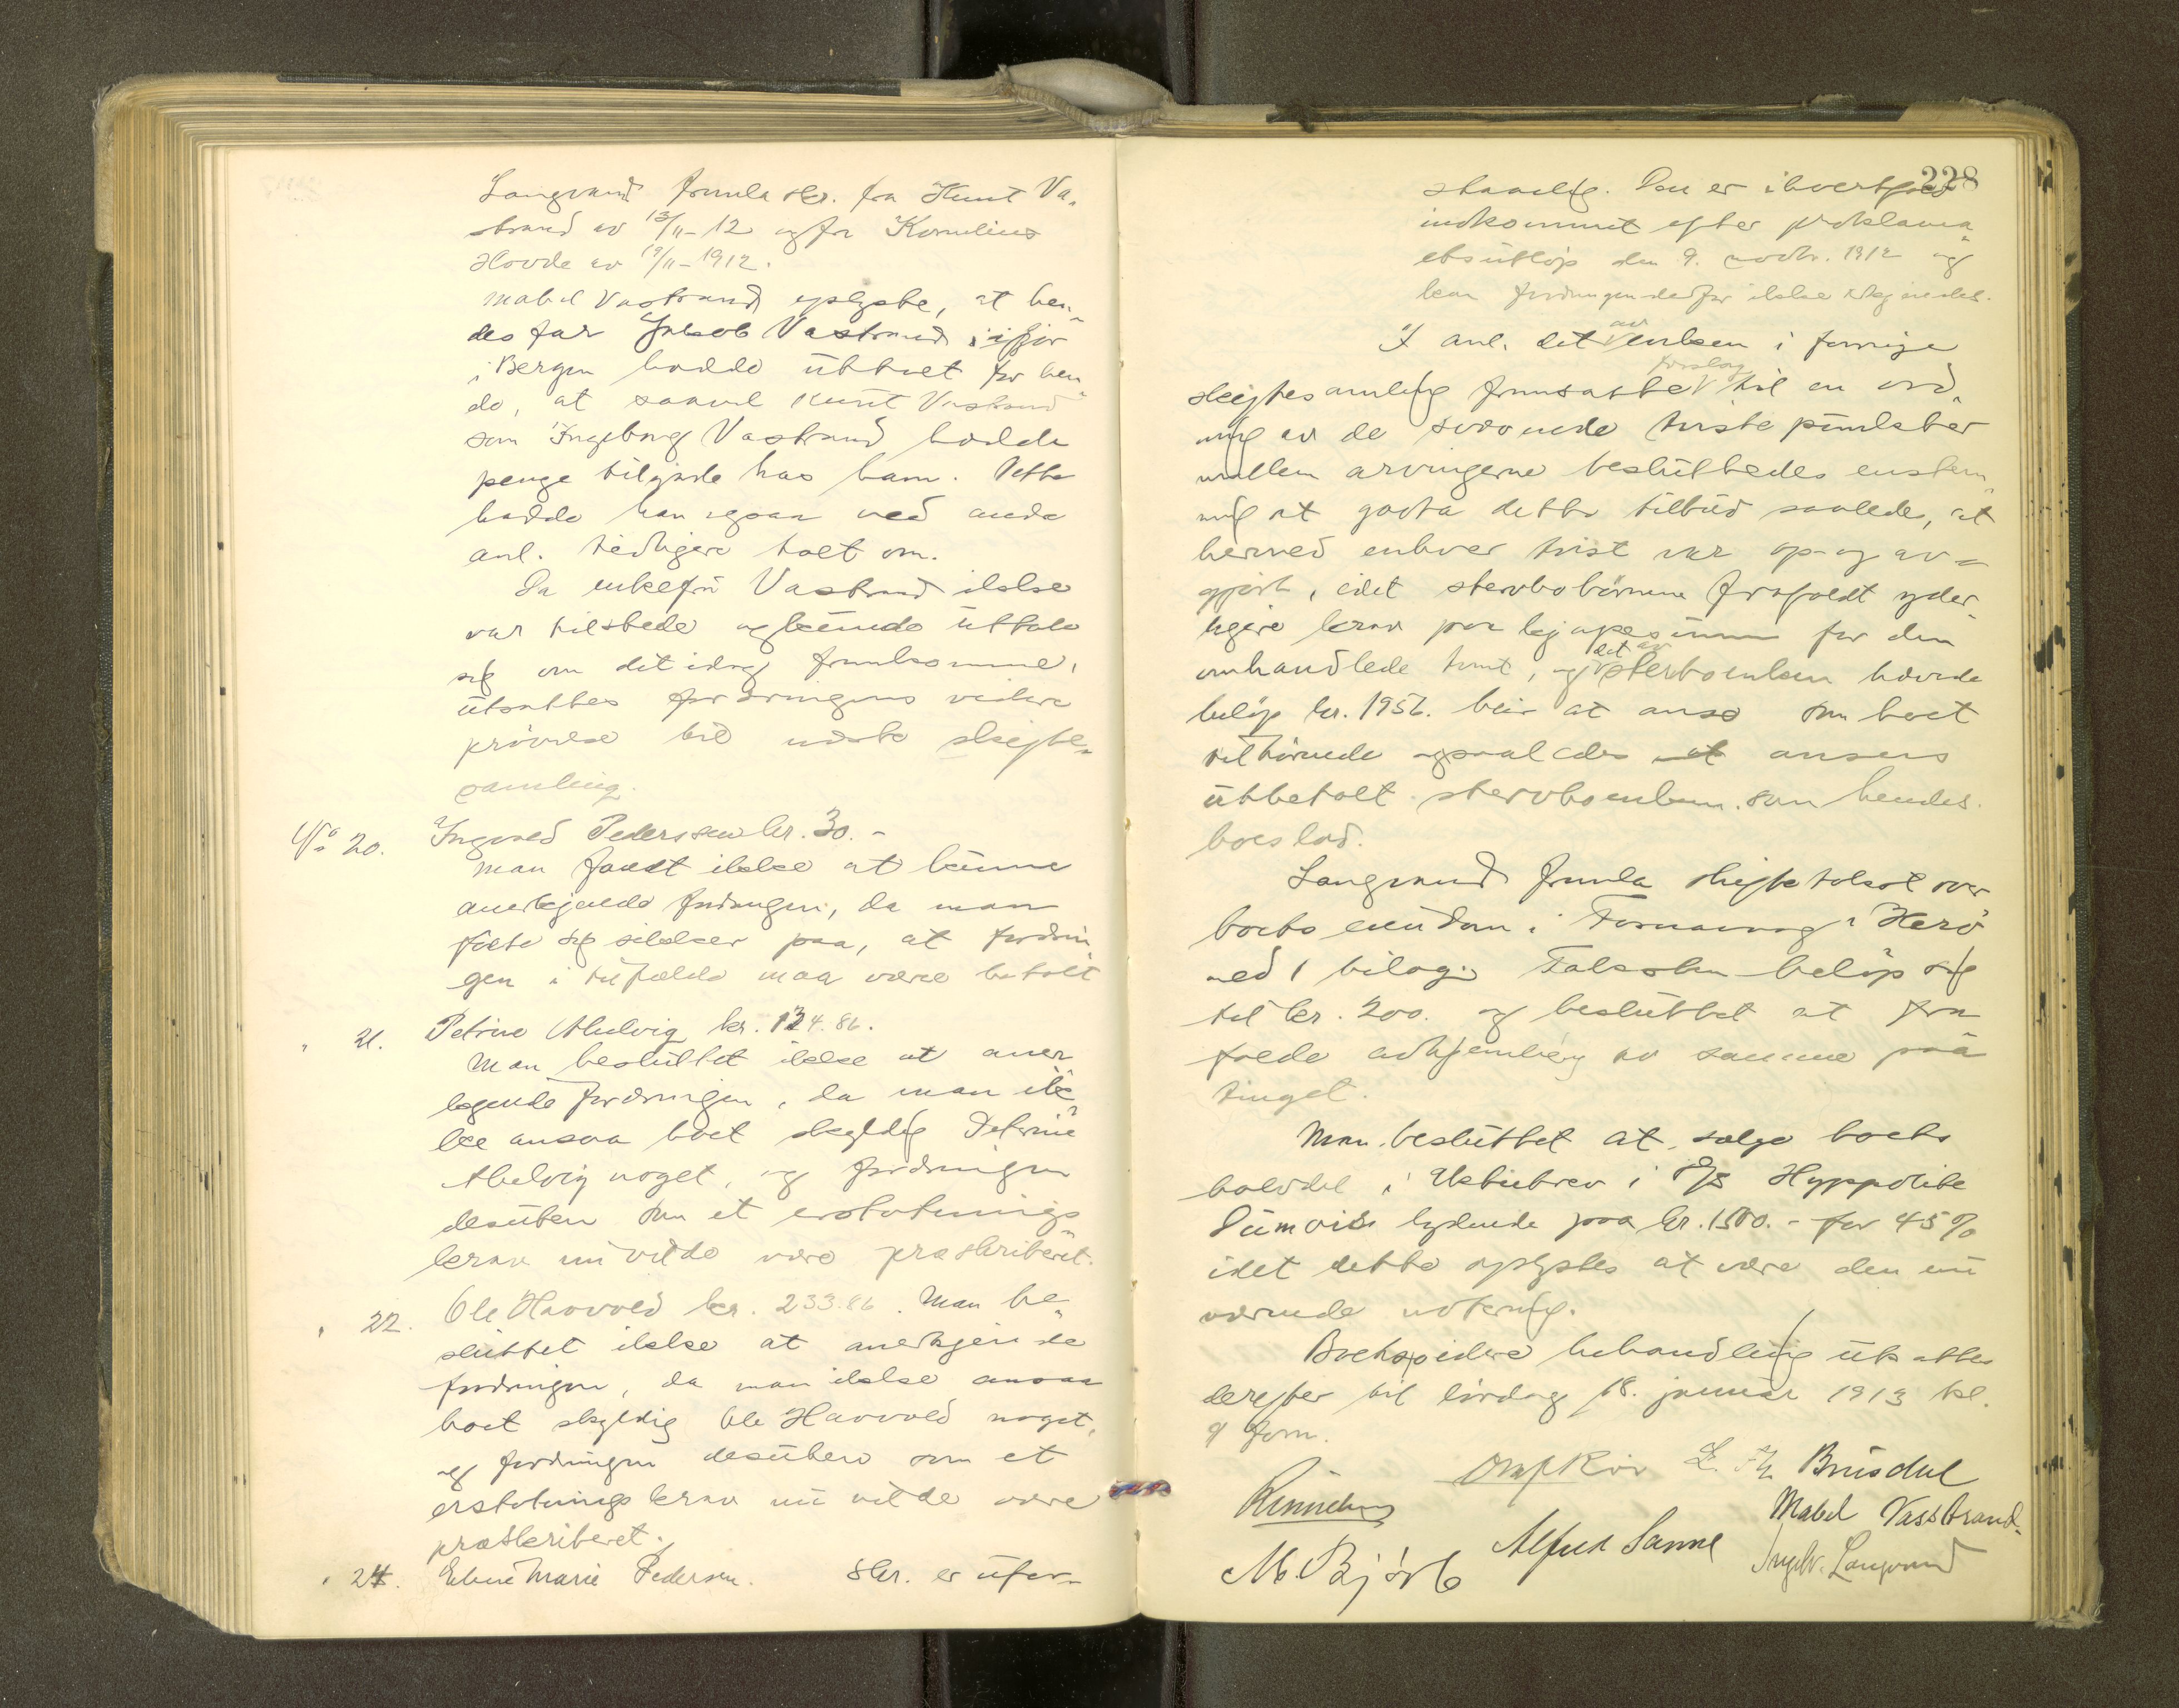 Langvand fremla skr. fra Knut Va„
strand av 13/11-12 og fra Kornelius
Hovde av 19/11-1912.
Mabel Vastrand oplyste, at hen„
des far Jakob Vastrand ifjor
i Bergen hadde uttalt for hen„
de, at saavel Knut Vastrand
som Ingeborg Vastrand hadde
penge tilgode hos ham. Dette
hadde han ogsaa ved andre
anl. tidligere talt om.
Da enkefru Vastrand ikke
var tilstede og kunde uttale
sig om det idag fremkomne,
utsattes fordringens videre
prövelse til næste skifte„
samling.
No 20. Ingvald Pedersen kr. 30.-
Man fandt ikke at kunne
anerkjende fordringen, da man
fölte sig sikker paa, at fordrin
gen i tilfælde maa være betalt
" 21. Petrine Mulvig kr. 124.86.
Man besluttet ikke at aner
kjende fordringen, da man ik„
ke ansaa boet skyldig Petrine
Mulvig noget, og fordringen
desuten som et erstatnings„
krav nu vilde være præskriberet.
" 22. Ole Havvold kr. 233.86. Man be„
sluttet ikke at anerkjende
fordringen, da man ikke ansaa
boet skyldig Ole Havvold noget,
og fordringen desuten som et
erstatningskrav nu vilde være
præskriberet.
" 24. Eline Marie Pedersen. Skr. er ufor„
228
staaelig. Den er ihvertfald
indkommet efter proklama„
ets utlöp den 9. novbr. 1912 og
kan fordringen derfor ikke godkjendes.
I anl. det av enken i forrige
skiftesamling fremsatte forslag til en ord„
ning av de svævende tvistepunkter
mellem arvingerne besluttedes enstem„
mig at godta dette tilbud saaledes, at
hermed enhver tvist var op- og av=
gjort, idet stervbobörnene frafaldt yder„
ligere krav paa kjöpesummen for den
omhandlede tomt, og det av stervboenken hævede
belöp kr. 1956. blir at anse som boet
tilhörende og saaledes at ansees
utbetalt stervboenken som hendes
boeslod.
Langvand fremla skiftetakst over
boets eiendom i Fosnavaag i Herö
med 1 bilag. Taksten belöp sig
til kr. 200. og besluttet at fra
falde avhjemling av samme paa
tinget.
Man besluttet at sælge boets
halvdel i Aktiebrev i D/S Hyppolite
Dumois lydende paa kr. 1500.- for 45%
idet dette oplystes at være den nu
værende notering.
Boets videre behandling utsattes
derefter til lördag 18. januar 1913 kl.
9 form.
Olaf Riis L. Fr. Brusdal
Mabel Vasstrand
M. Björk Alfred Sanne Ingebr. Langvand